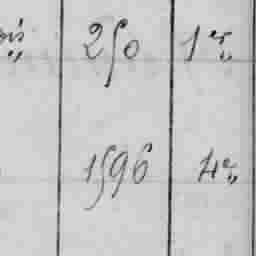 250 1er„
1596 4e„